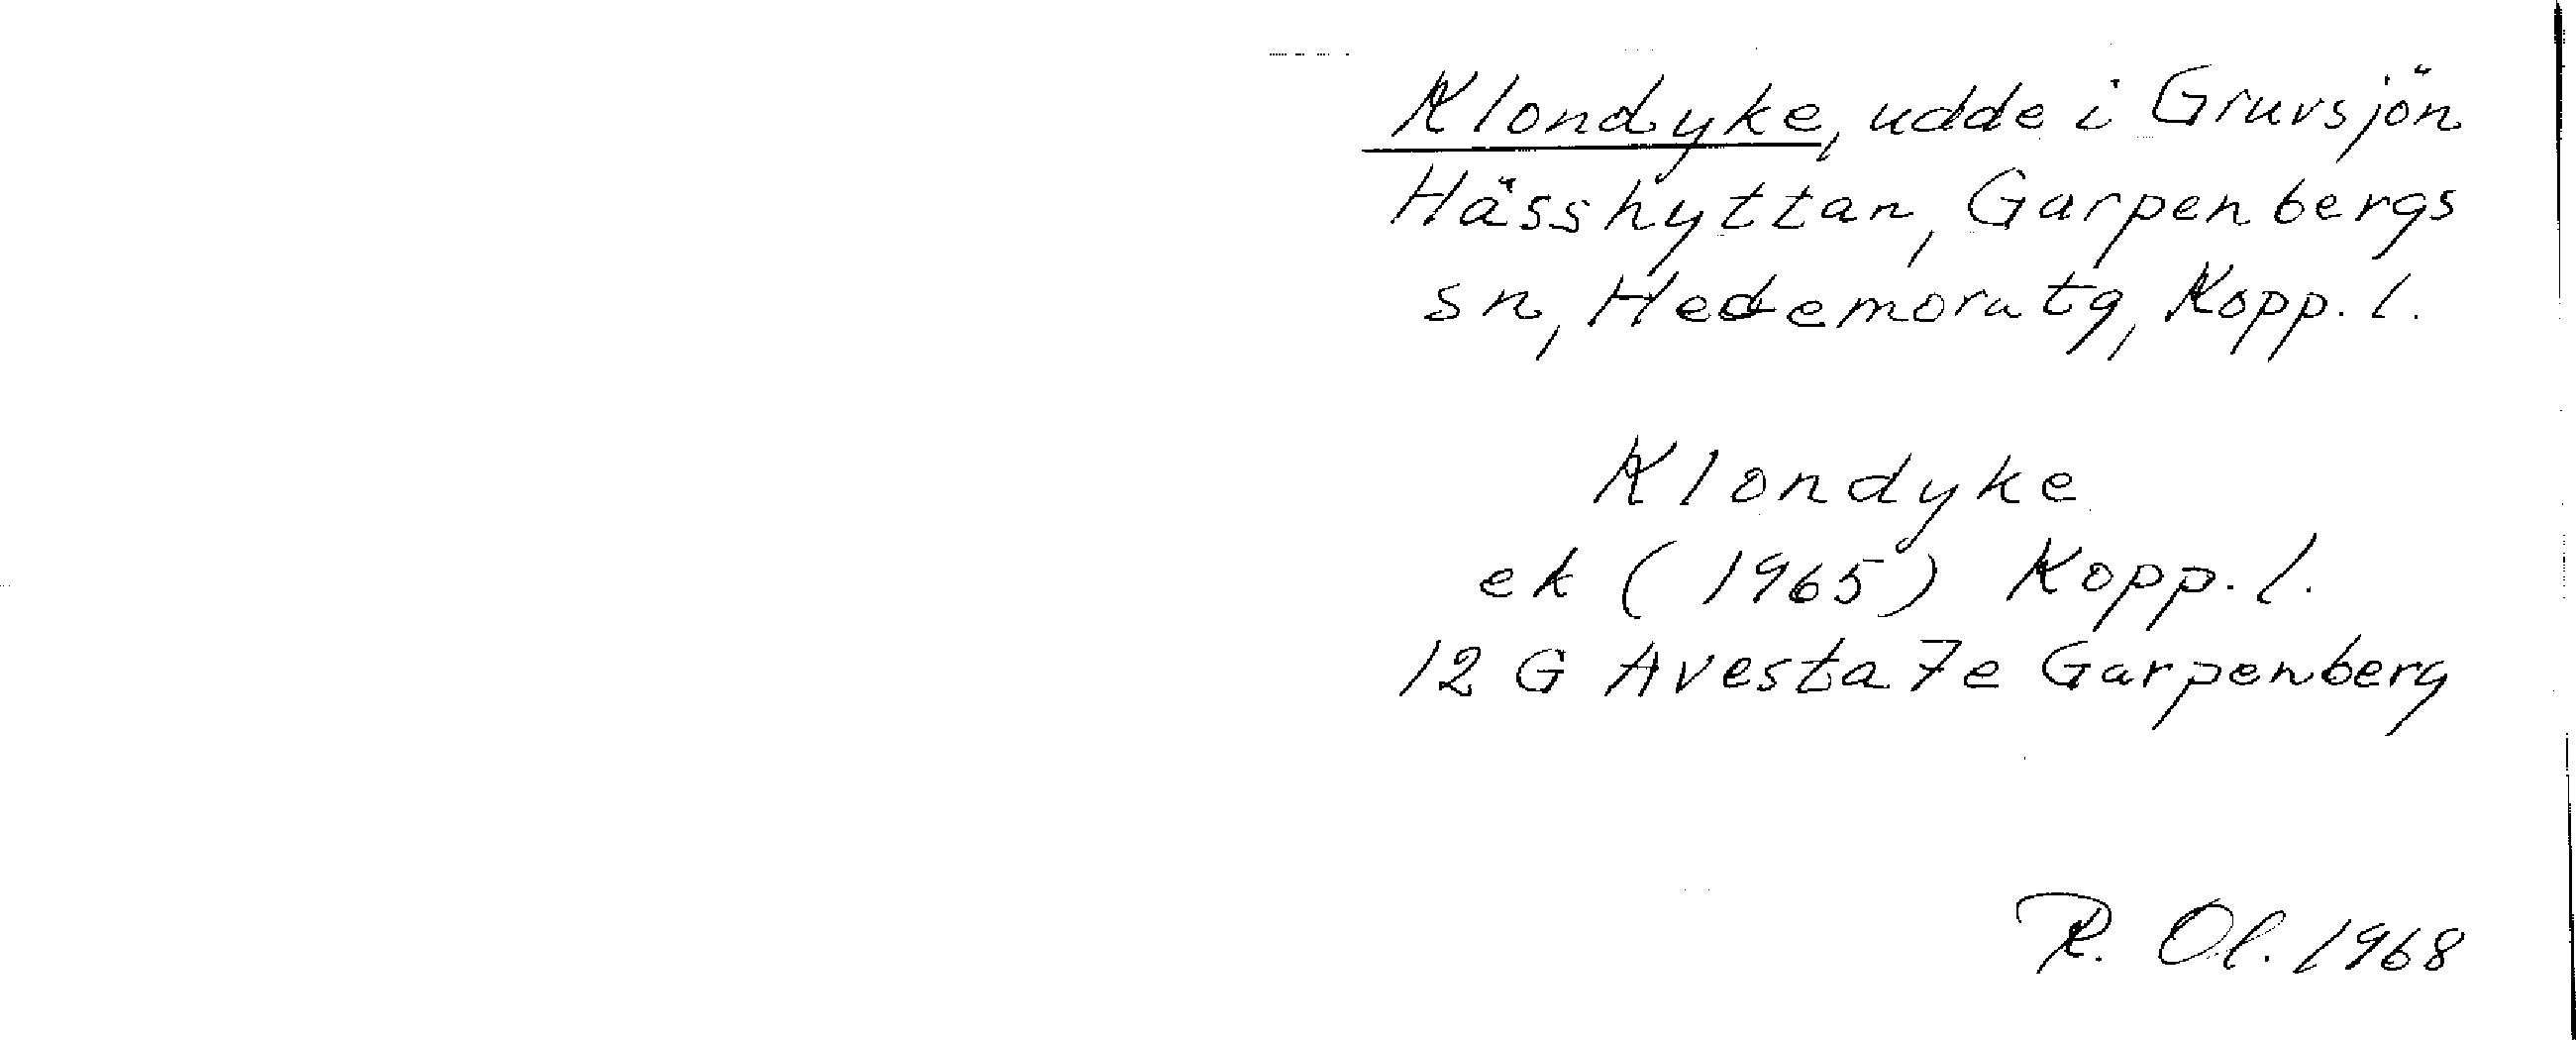 Klondyke, udde i Gruvsjön
Hässhyttan, Garpenbergs
sn, Hedemora tg, Kopp. l.
Klondyke
ek (1965) Kopp. l.
12 G Avesta 7e Garpenberg
R. Ol. 1968